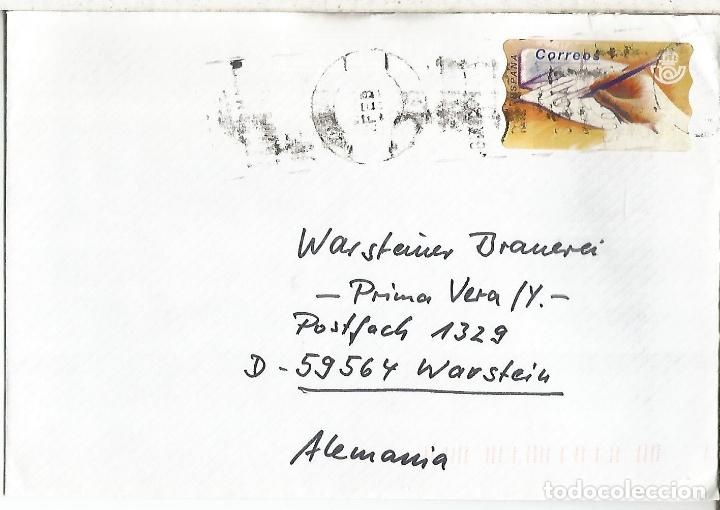 Correos
ESPAÑA
FEB
Warsteiner Brauerei
- Prima Vera /Y. -
Postfach 1329
D - 59564 Warstein
Alemania
todocoleccion